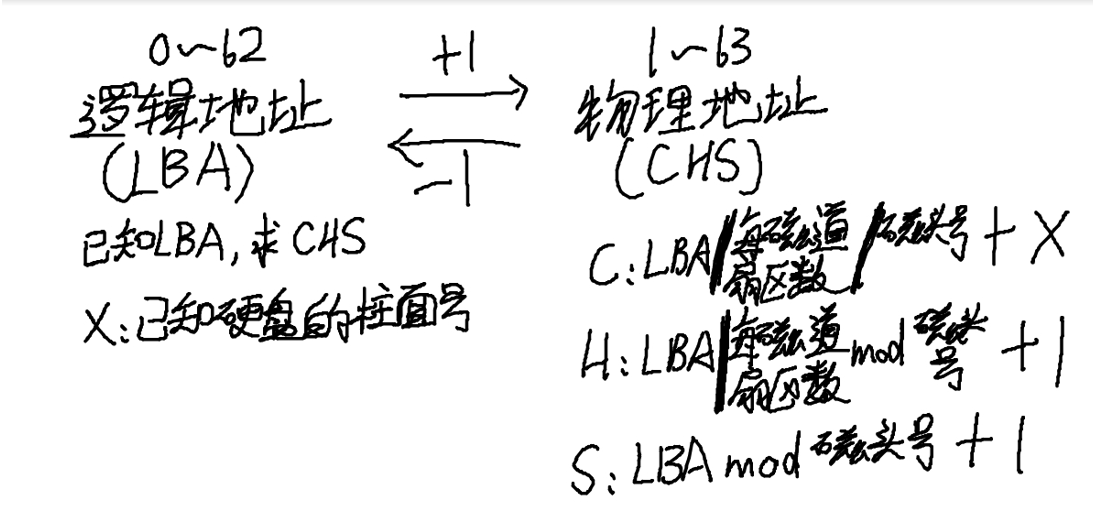 0~62
+1
1~63
逻辑地址
物理地址
(LBA)
-1
(CHS)
已知LBA,求CHS
X:已知硬盘的柱面号
C:LBA/每磁道扇区数/磁头号+X
H:LBA/每磁道扇区数 mod 磁头号+1
S:LBA mod 磁头号+1